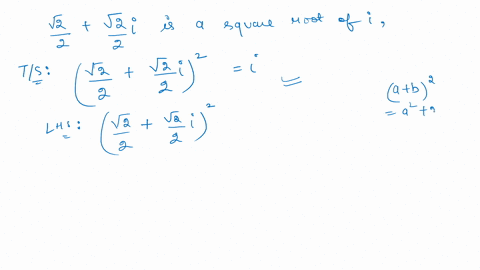 √2/2 + √2/2 i is a square root of i,
T/S: (√2/2 + √2/2 i)² = i
(a+b)²
= a² + 2
LHS: (√2/2 + √2/2 i)²